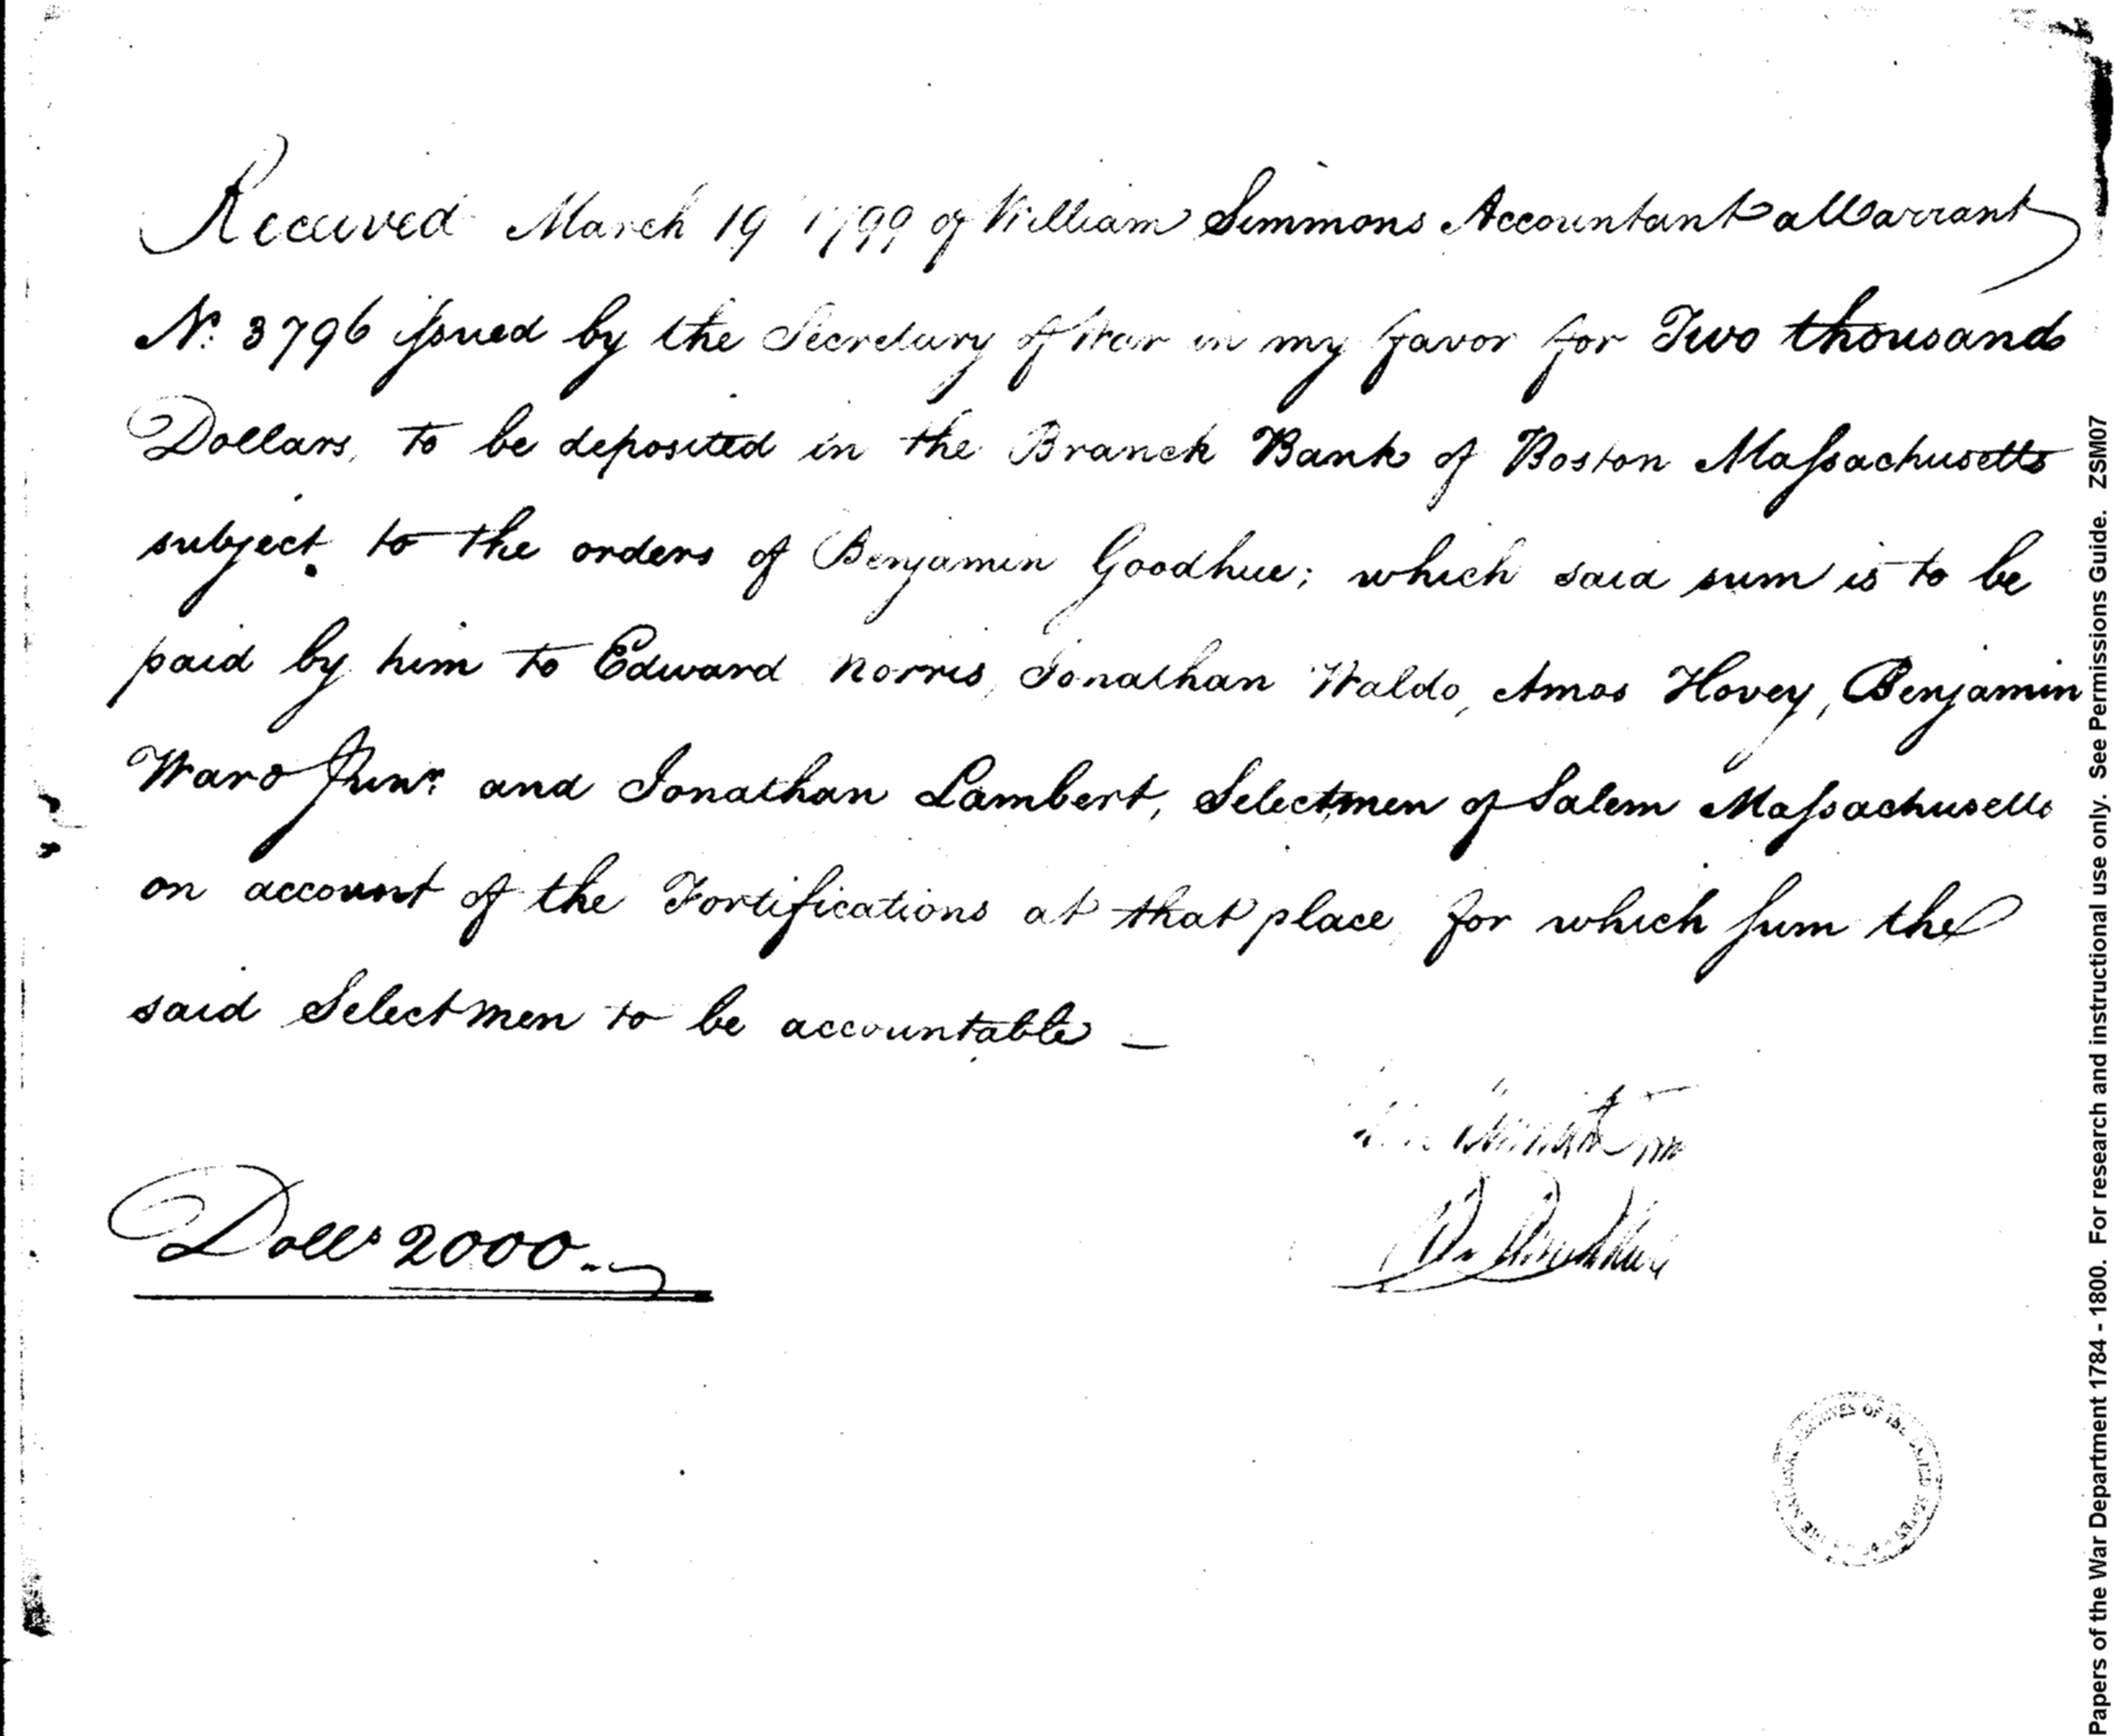 Received March 19 1799 of William Simmons Accountant a Warrant
No. 3796 issued by the Secretary of War in my favor for Two thousand
Dollars, to be deposited in the Branch Bank of Boston Massachusetts
subject to the orders of Benjamin Goodhue; which said sum is to be
paid by him to Edward Norris, Jonathan Waldo, Amos Hovey, Benjamin
Ward Junr. and Jonathan Lambert, Selectmen of Salem Massachusetts
on account of the Fortifications at that place, for which sum the
said Selectmen to be accountable —
Dolls 2000
Papers of the War Department 1784 - 1800. For research and instructional use only. See Permissions Guide. ZSM07